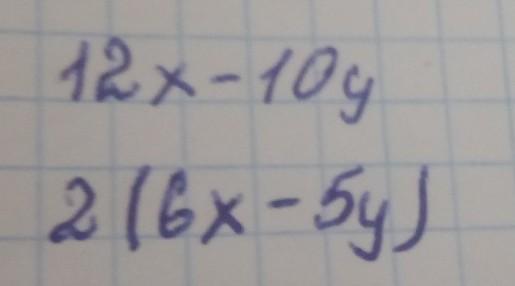 12x-10y
2(6x-5y)